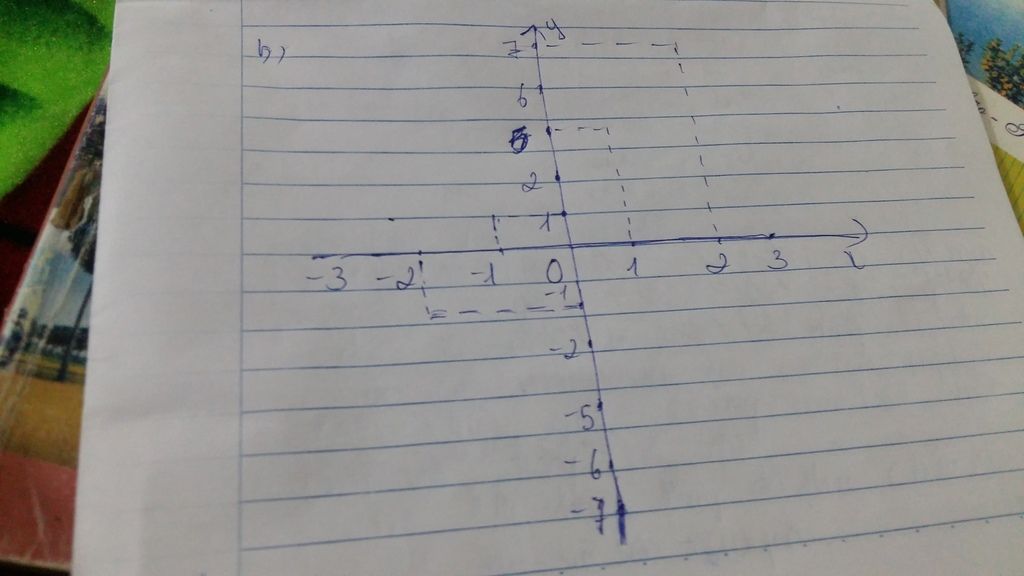 b)
y
7
6
5
2
1
-3 -2 -1 0 1 2 3
-1
-2
-5
-6
-7